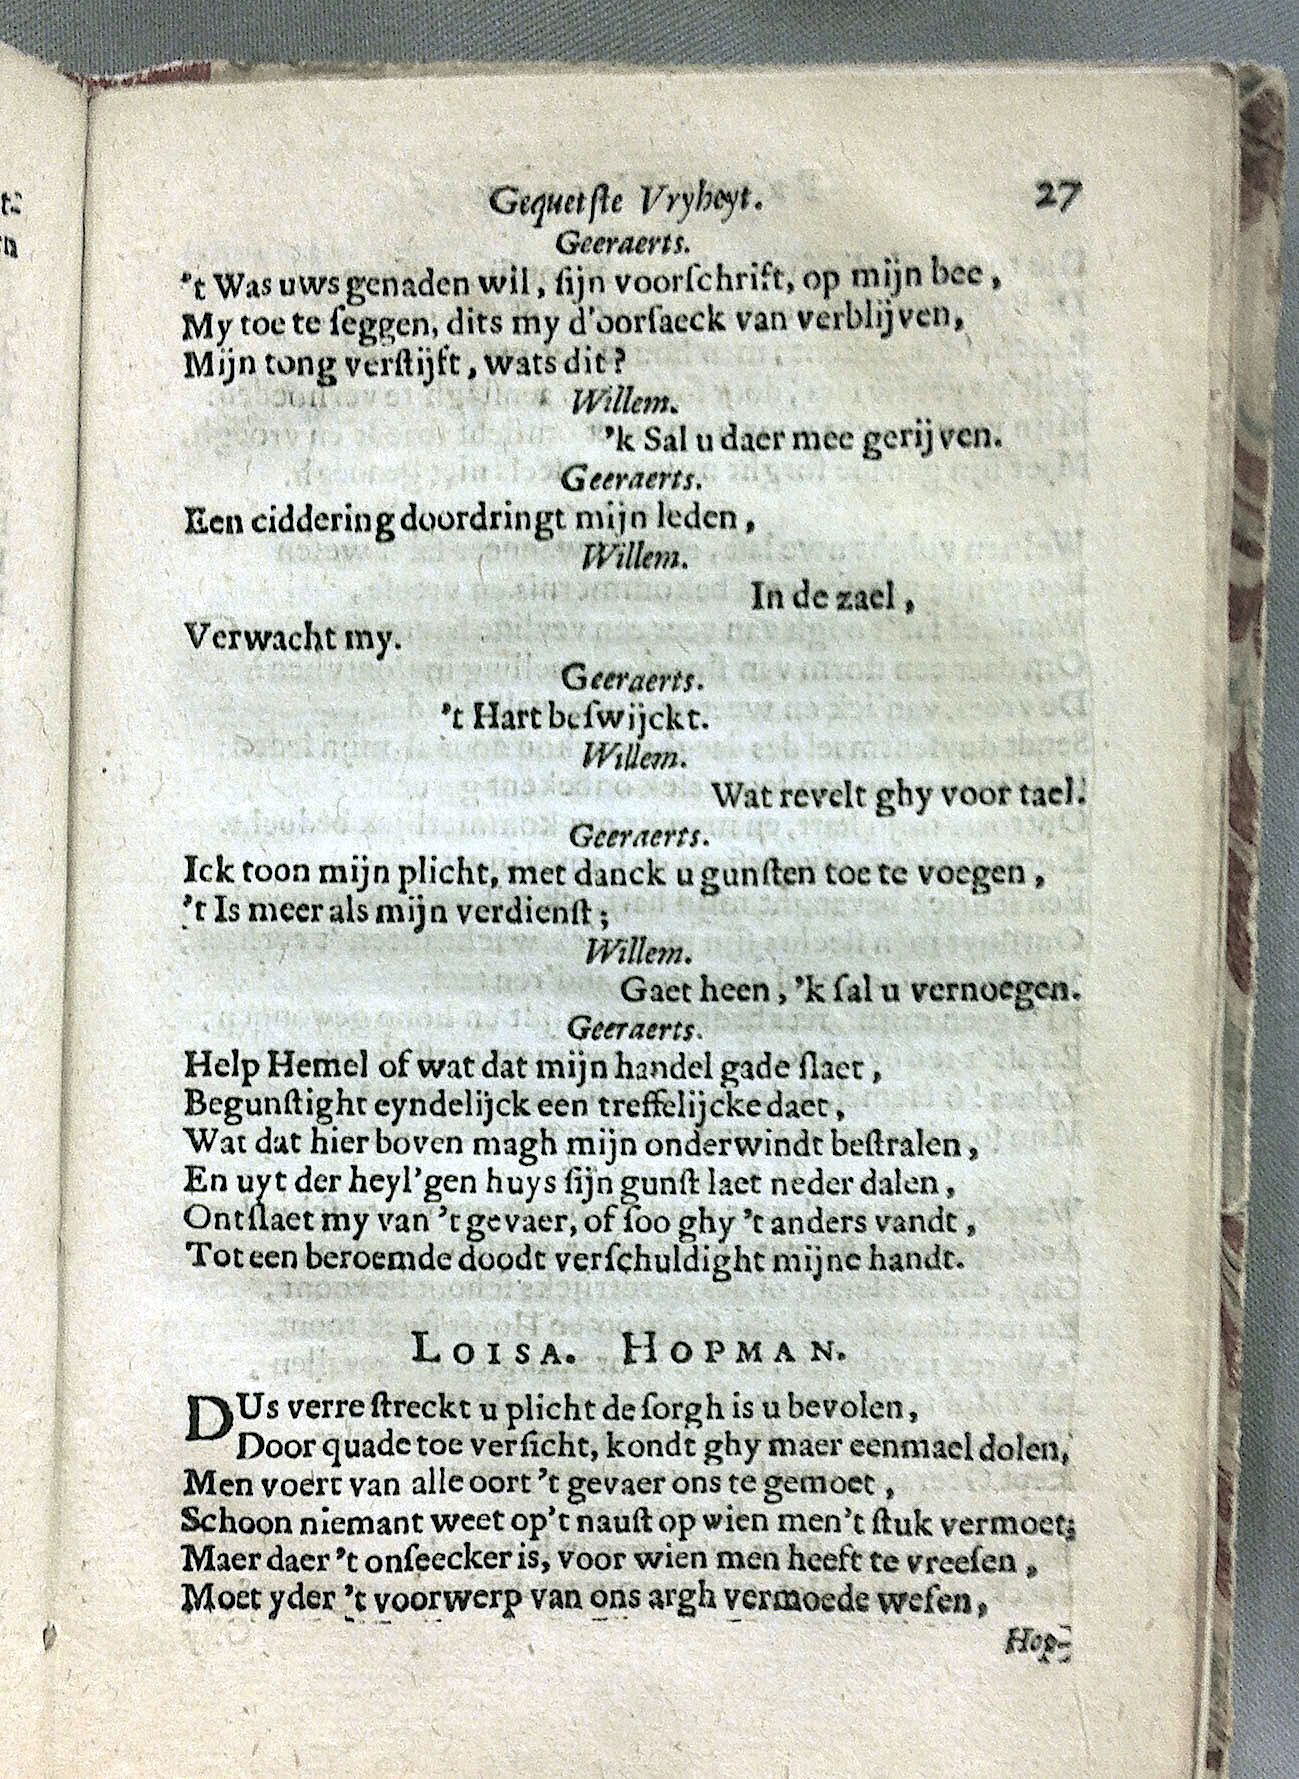 Gequetste Vryheyt. 27
Geeraerts.
't Was uws genaden wil, sijn voorschrift, op mijn bee,
My toe te seggen, dits my d'oorsaeck van verblijven,
Mijn tong verstijft, wats dit?
Willem.
'k Sal u daer mee gerijven.
Geeraerts.
Een ciddering doordringt mijn leden,
Willem.
In de zael,
Verwacht my.
Geeraerts.
't Hart beswijckt.
Willem.
Wat revelt ghy voor tael.
Geeraerts.
Ick toon mijn plicht, met danck u gunsten toe te voegen,
't Is meer als mijn verdienst;
Willem.
Gaet heen, 'k sal u vernoegen.
Geeraerts.
Help Hemel of wat dat mijn handel gade slaet,
Begunstight eyndelijck een treffelijcke daet,
Wat dat hier boven magh mijn onderwindt bestralen,
En uyt der heyl'gen huys sijn gunst laet neder dalen,
Ontslaet my van 't gevaer, of soo ghy 't anders vandt,
Tot een beroemde doodt verschuldight mijne handt.
LOISA. HOPMAN.
DUs verre streckt u plicht de sorgh is u bevolen,
Door quade toe versicht, kondt ghy maer eenmael dolen,
Men voert van alle oort 't gevaer ons te gemoet,
Schoon niemant weet op't naust op wien men't stuk vermoet;
Maer daer 't onseecker is, voor wien men heeft te vreesen,
Moet yder 't voorwerp van ons argh vermoede wesen,
Hop-